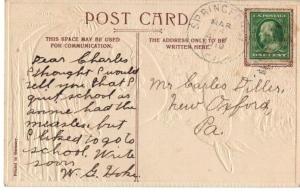 POST CARD
THIS SPACE MAY BE USED
FOR COMMUNICATION.
THE ADDRESS ONLY TO BE
WRITTEN HERE.
SPRING
MAR
Dear Charles
I thought I would
tell you that I
quit school as
some had the
measles, but
I liked to go to
school. Write
soon
W. G. Hoke
Mr. Charles Diller,
New Oxford
Pa.